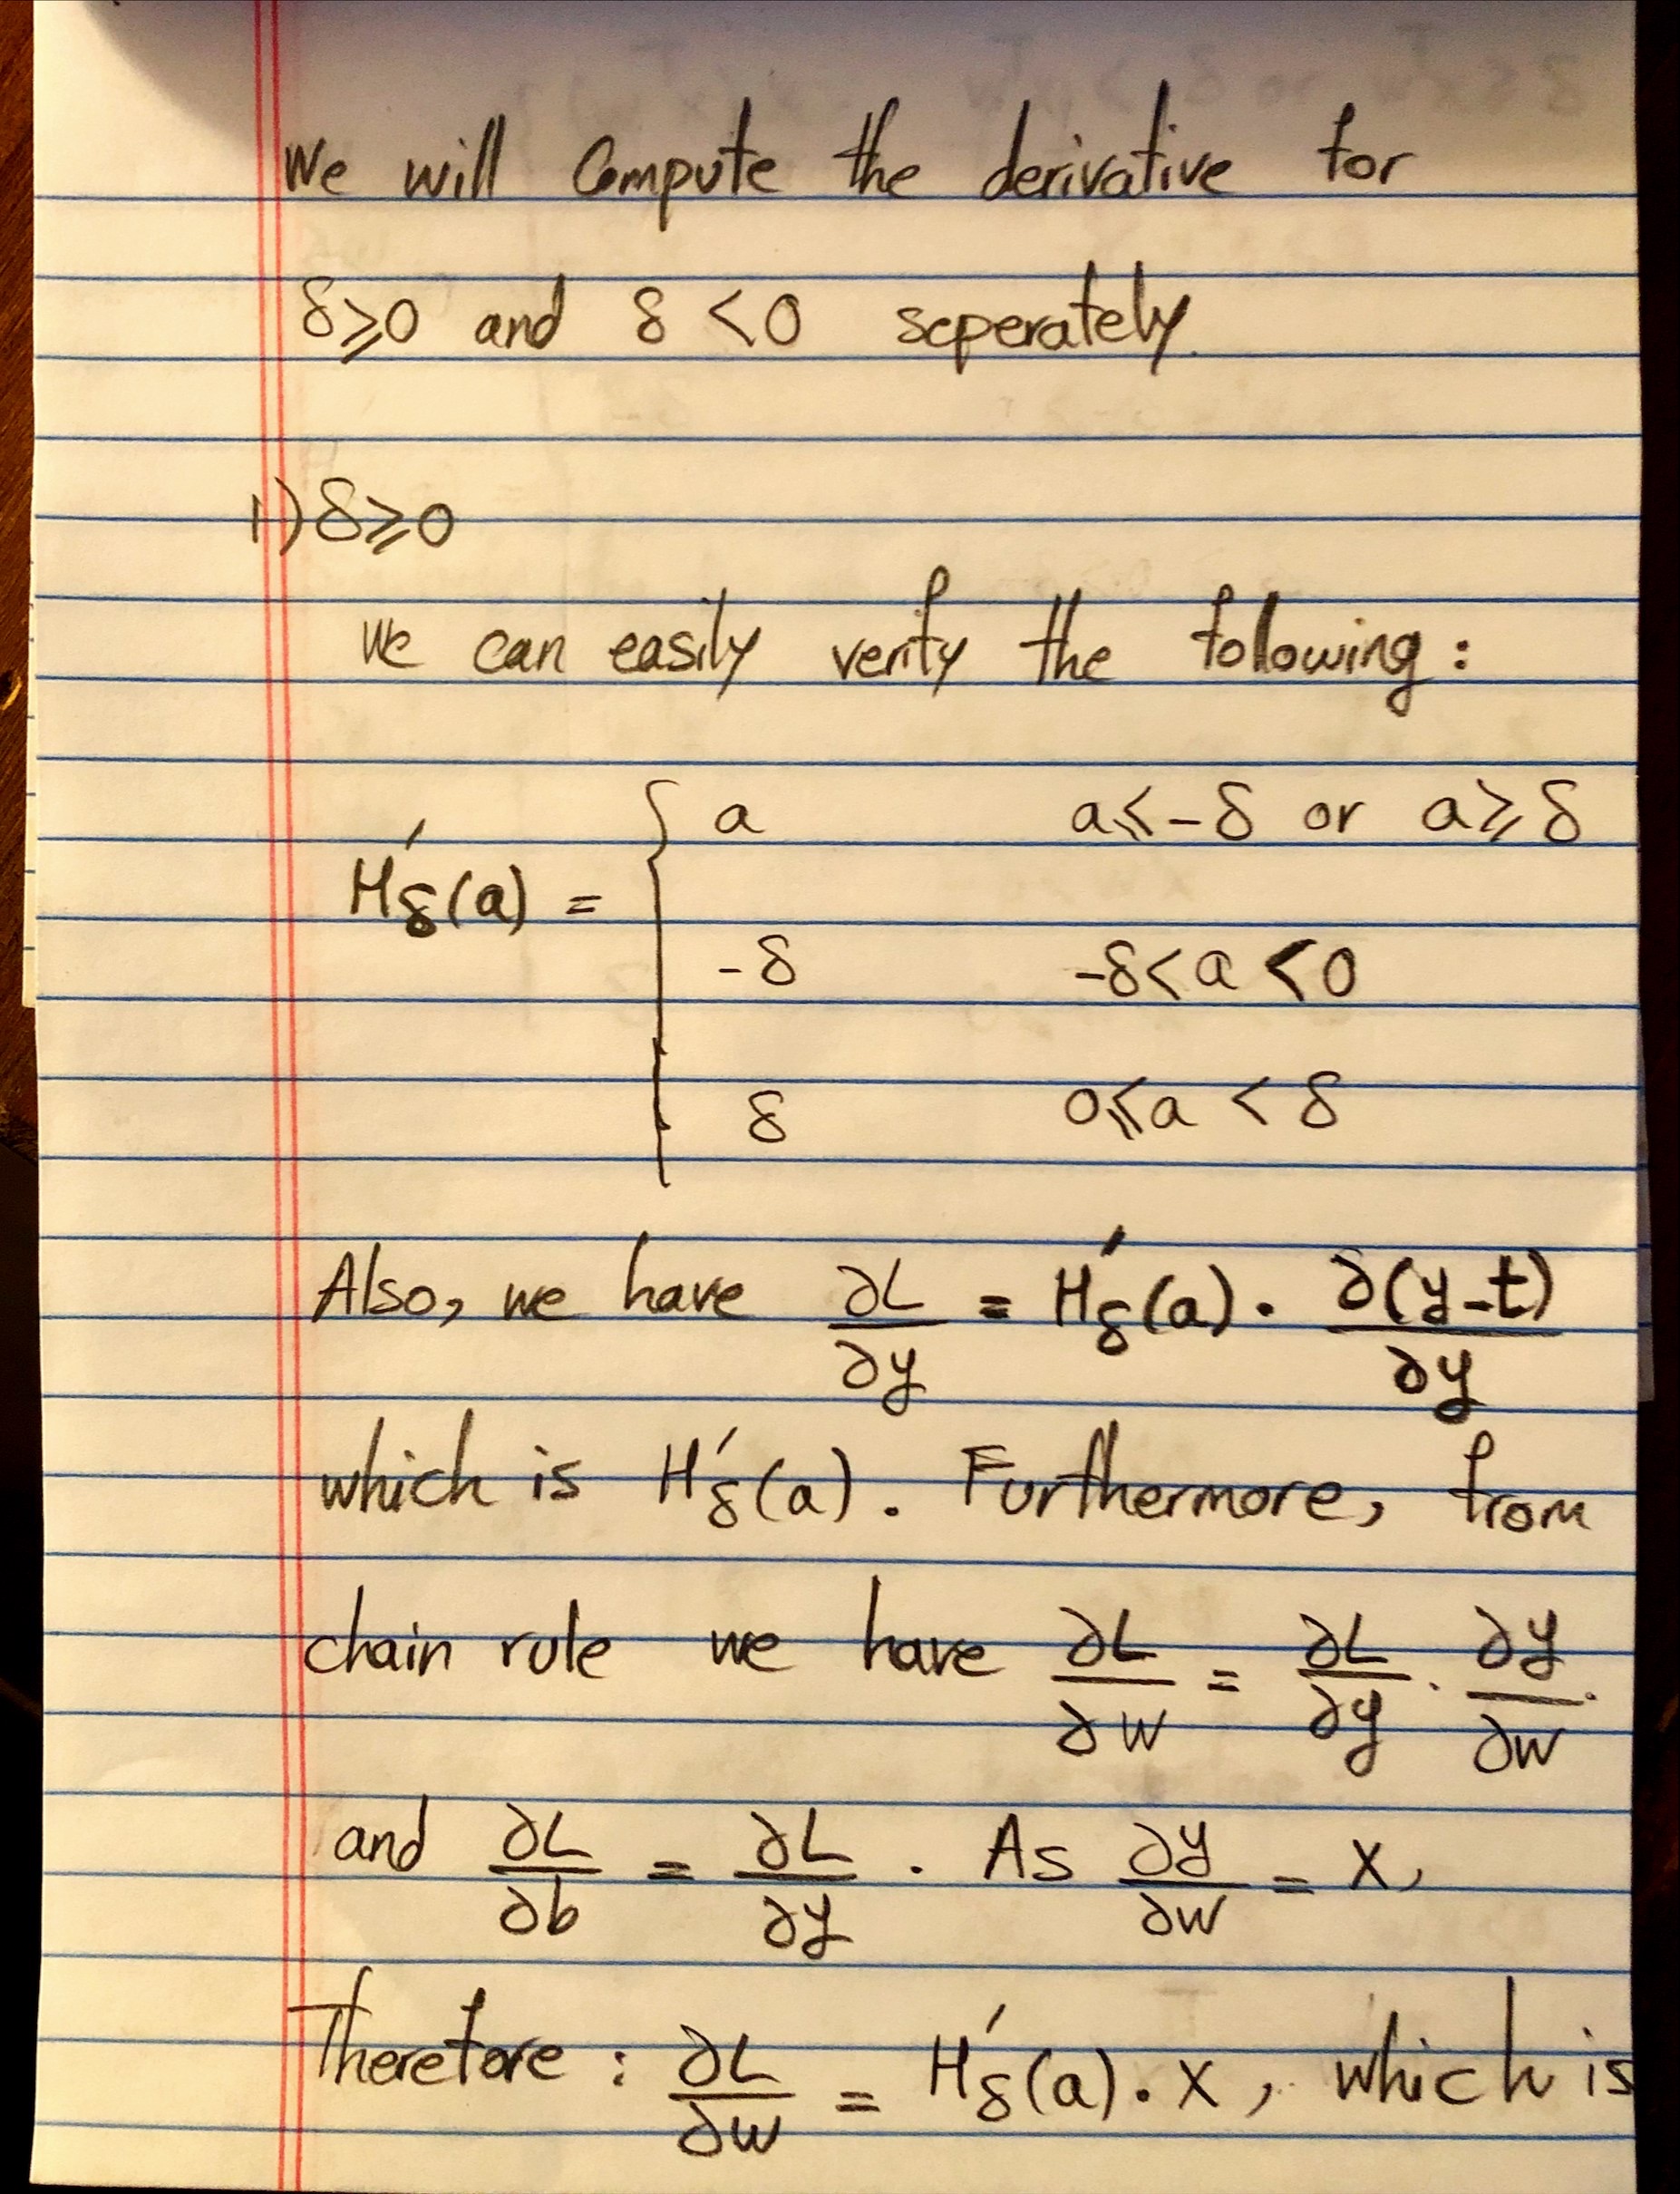 We will compute the derivative for
δ⩾0 and δ < 0 seperately.
1) δ⩾0
We can easily verify the following :
H'δ(a) = { a    a⩽-δ or a⩾δ
-δ    -δ<a<0
δ    0⩽a < δ
Also, we have ∂L/∂y = H'δ(a) . ∂(y-t)/∂y
which is H'δ(a). Furthermore, from
chain rule we have ∂L/∂w = ∂L/∂y . ∂y/∂w .
and ∂L/∂b = ∂L/∂y . As ∂y/∂w = x,
Therefore : ∂L/∂w = H'δ(a) . x , which is